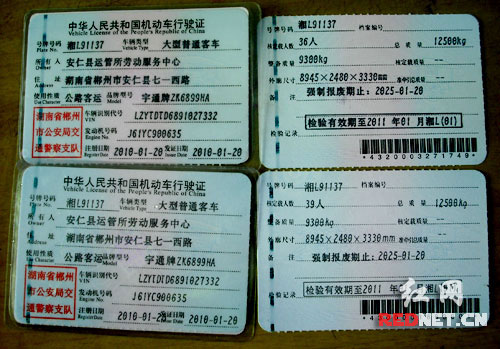 中华人民共和国机动车行驶证
Vehicle License of the People's Republic of China
号牌号码 湘L91137 车辆类型 大型普通客车
Plate No. Vehicle Type
所有人 安仁县运管所劳动服务中心
Owner
住址 湖南省郴州市安仁县七一西路
Address
使用性质 公路客运 品牌型号 宇通牌ZK6899HA
Use Character Model
湖南省郴州市公安局交通警察支队
车辆识别代号 LZYTDTD6891027332
VIN
发动机号码 J61YC900635
Engine No.
注册日期 2010-01-20 发证日期 2010-01-20
Register Date Issue Date
号牌号码 湘L91137 档案编号
核定载人数 36人 总质量 12500kg
整备质量 9300kg 核定载质量
外廓尺寸 8945×2480×3330mm 准牵引总质量
备注 强制报废期止:2025-01-20
检验有效期至2011年01月湘L(01)
检验记录
*4320003271749*
中华人民共和国机动车行驶证
Vehicle License of the People's Republic of China
号牌号码 湘L91137 车辆类型 大型普通客车
Plate No. Vehicle Type
所有人 安仁县运管所劳动服务中心
Owner
住址 湖南省郴州市安仁县七一西路
Address
使用性质 公路客运 品牌型号 宇通牌ZK6899HA
Use Character Model
湖南省郴州市公安局交通警察支队
车辆识别代号 LZYTDTD6891027332
VIN
发动机号码 J61YC900635
Engine No.
注册日期 2010-01-20 发证日期 2010-01-20
Register Date Issue Date
号牌号码 湘L91137 档案编号
核定载人数 39人 总质量 12500kg
整备质量 9300kg 核定载质量
外廓尺寸 8945×2480×3330mm 准牵引总质量
备注 强制报废期止:2025-01-20
检验有效期至2011年
检验记录
红网
REDNET.CN